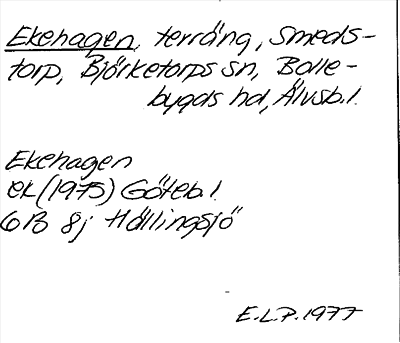 Ekehagen, terräng, Smeds-
torp, Björketorps sn, Bolle-
bygds hd, Älvsb.l.
Ekehagen
ek (1975) Göteb.l.
6B 8j Hällingsjö
E.L.P. 1977